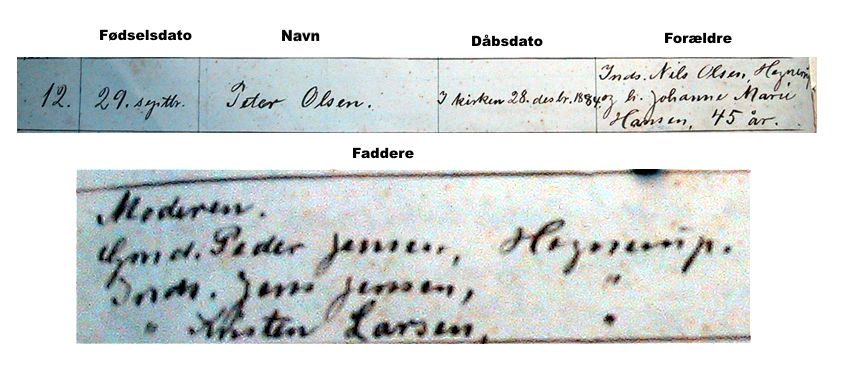 Fødselsdato Navn Dåbsdato Forældre
12. 29. septbr. Peter Olsen. I kirken 28. desbr. 1884.
Inds. Nils Olsen, Høgnerup,
og h. Johanne Marie
Hansen, 45 år.
Faddere
Moderen.
Gmd. Peder Jensen, Høgnerup.
Inds. Jens Jensen, "
" Kristen Larsen, "